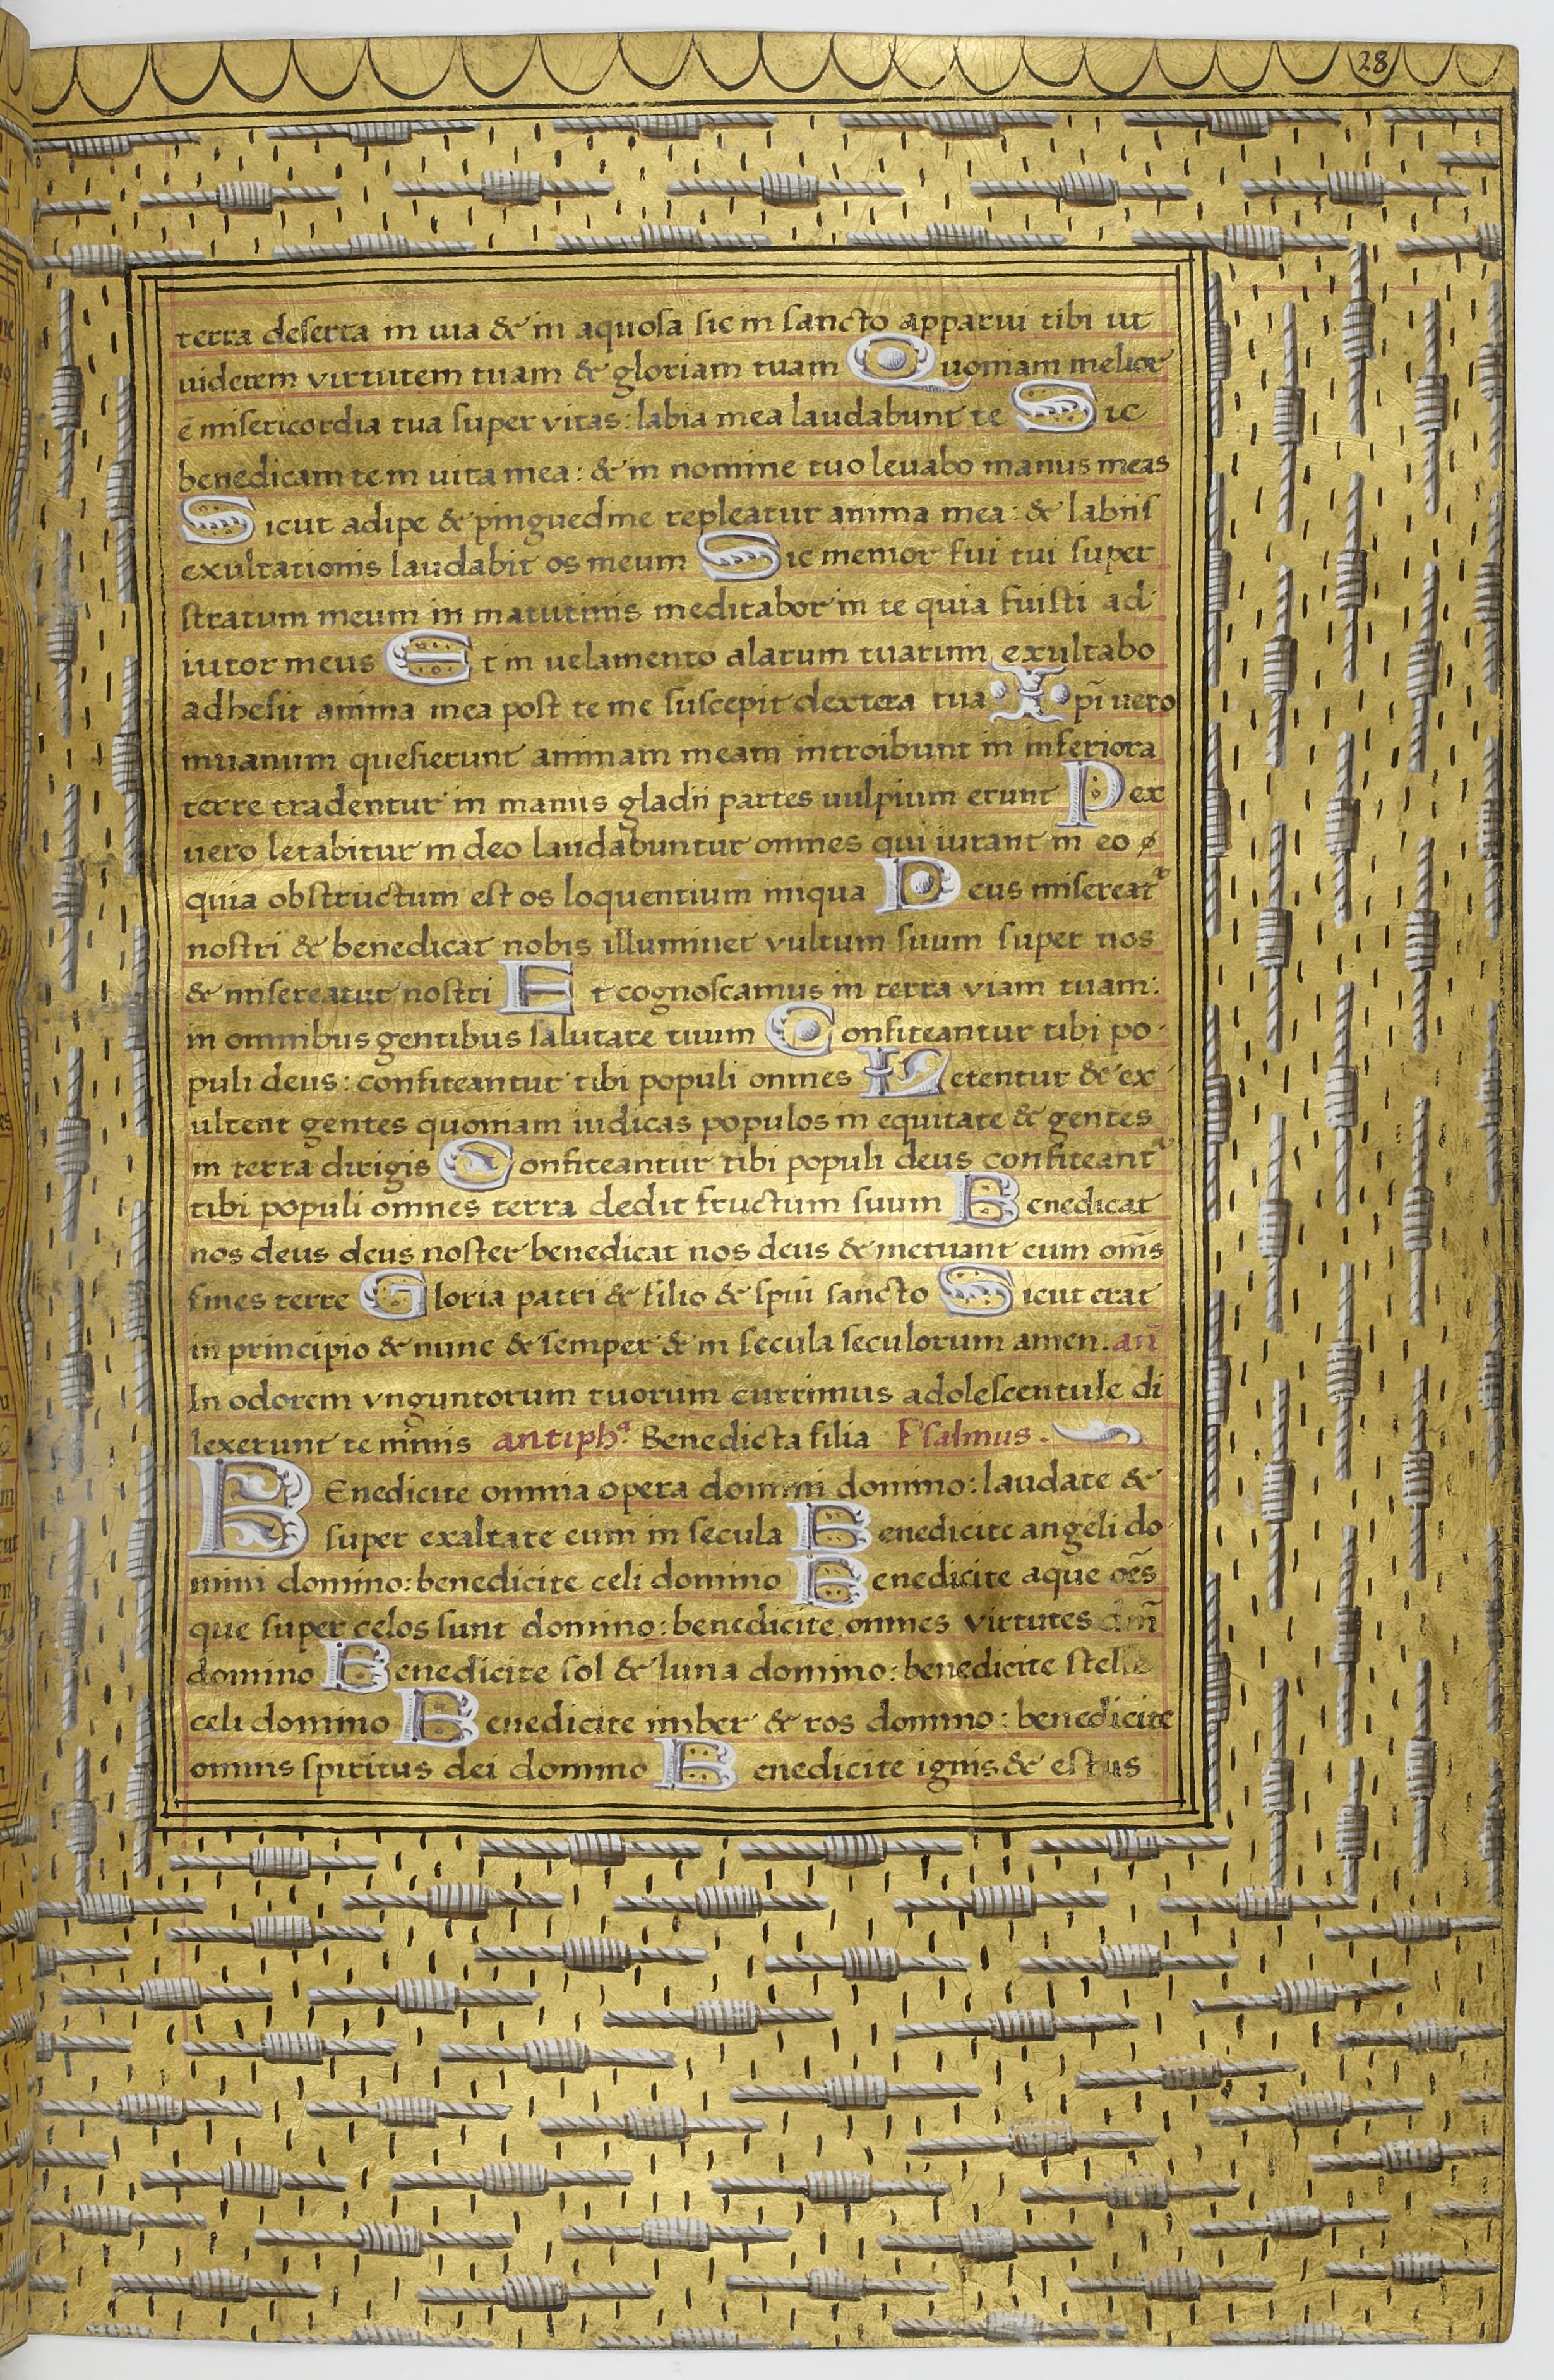 28
terra deserta in uia & in aquosa sic in sancto apparui tibi ut
uiderem virtutem tuam & gloriam tuam Quoniam melior
ē misericordia tua super vitas: labia mea laudabunt te Sic
benedicam te in uita mea: & in nomine tuo levabo manus meas
Sicut adipe & pinguedine repleatur anima mea: & labiis
exultationis laudabit os meum Sic memor fui tui super
stratum meum in matutinis meditabor in te quia fuisti ad
iutor meus Et in uelamento alarum tuarum exultabo
adhesit anima mea post te me suscepit dextera tua Ipi vero
inuanum quesierunt animam meam introibunt in inferiora
terre tradentur in manus gladii partes uulpium erunt Rex
uero letabitur in deo laudabuntur omnes qui iurant in eo
quia obstructum est os loquentium iniqua Deus misereat
nostri & benedicat nobis illuminet vultum suum super nos
& misereatur nostri Et cognoscamus in terra viam tuam:
in omnibus gentibus salutare tuum Confiteantur tibi po
puli deus: confiteantur tibi populi omnes Letentur & ex
ultent gentes quoniam iudicas populos in equitate & gentes
in terra dirigis Confiteantur tibi populi deus confiteant
tibi populi omnes terra dedit fructum suum Benedicat
nos deus deus noster benedicat nos deus & metuant eum om̄s
fines terre Gloria patri & filio & spiui sancto Sicut erat
in principio & nunc & semper & in secula seculorum amen. an̄
In odorem vnguntorum tuorum currimus adolescentule di
lexerunt te nimis antiphᵃ Benedicta filia Psalmus.
BEnedicite omnia opera domini domino: laudate &
super exaltate eum in secula Benedicite angeli do
mini domino: benedicite celi domino Benedicite aque oēs
que super celos sunt domino: benedicite omnes virtutes dm̄
domino Benedicite sol & luna domino: benedicite stelle
celi domino Benedicite imber & ros domino: benedicite
omnis spiritus dei domino Benedicite ignis & estus